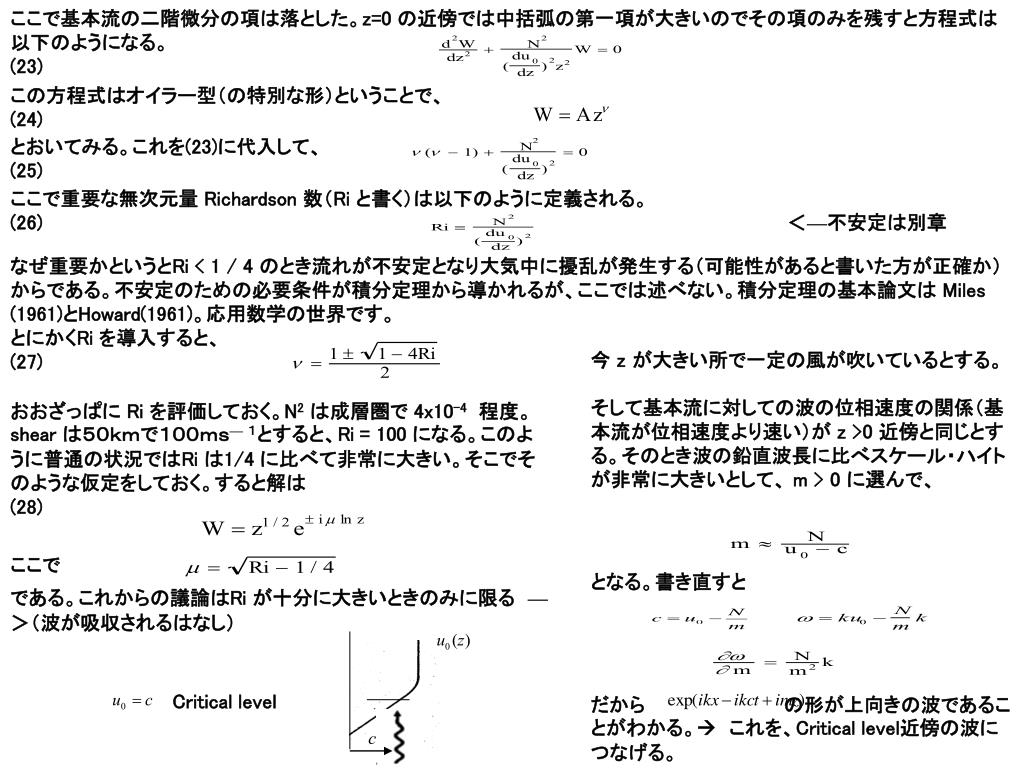 ここで基本流の二階微分の項は落とした。z=0 の近傍では中括弧の第一項が大きいのでその項のみを残すと方程式は
以下のようになる。
(23)
d²W/dz² + N²/((du₀/dz)²z²) W = 0
この方程式はオイラー型（の特別な形）ということで、
(24)
W = Az^ν
とおいてみる。これを(23)に代入して、
(25)
ν(ν − 1) + N²/(du₀/dz)² = 0
ここで重要な無次元量 Richardson 数（Ri と書く）は以下のように定義される。
(26)
Ri = N²/(du₀/dz)²
＜—不安定は別章
なぜ重要かというとRi < 1 / 4 のとき流れが不安定となり大気中に擾乱が発生する（可能性があると書いた方が正確か）
からである。不安定のための必要条件が積分定理から導かれるが、ここでは述べない。積分定理の基本論文は Miles
(1961)とHoward(1961)。応用数学の世界です。
とにかくRi を導入すると、
(27)
ν = (1 ± √(1 − 4Ri))/2
おおざっぱに Ri を評価しておく。N² は成層圏で 4x10⁻⁴ 程度。
shear は５０kmで１００ms⁻¹とすると、Ri = 100 になる。このよ
うに普通の状況ではRi は1/4 に比べて非常に大きい。そこでそ
のような仮定をしておく。すると解は
(28)
W = z^{1/2} e^{± iμ ln z}
ここで
μ = √(Ri − 1/4)
である。これからの議論はRi が十分に大きいときのみに限る —
＞（波が吸収されるはなし）
u₀(z)
u₀ = c Critical level
c
今 z が大きい所で一定の風が吹いているとする。
そして基本流に対しての波の位相速度の関係（基
本流が位相速度より速い）が z >0 近傍と同じとす
る。そのとき波の鉛直波長に比べスケール・ハイト
が非常に大きいとして、 m > 0 に選んで、
m ≈ N/(u₀ − c)
となる。書き直すと
c = u₀ − N/m ω = ku₀ − N/m k
∂ω/∂m = N/m² k
だから exp(ikx − ikct + imz) の形が上向きの波であるこ
とがわかる。→ これを、Critical level近傍の波に
つなげる。